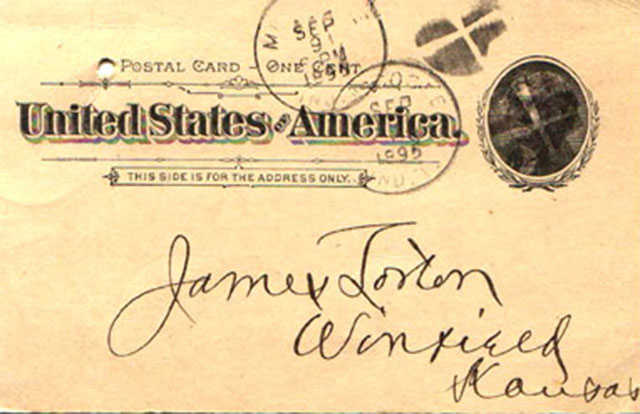 POSTAL CARD – ONE CENT.
United States of America.
THIS SIDE IS FOR THE ADDRESS ONLY.
SEP
1895
SEP
1895
IND.
James
Winfield
Kansas